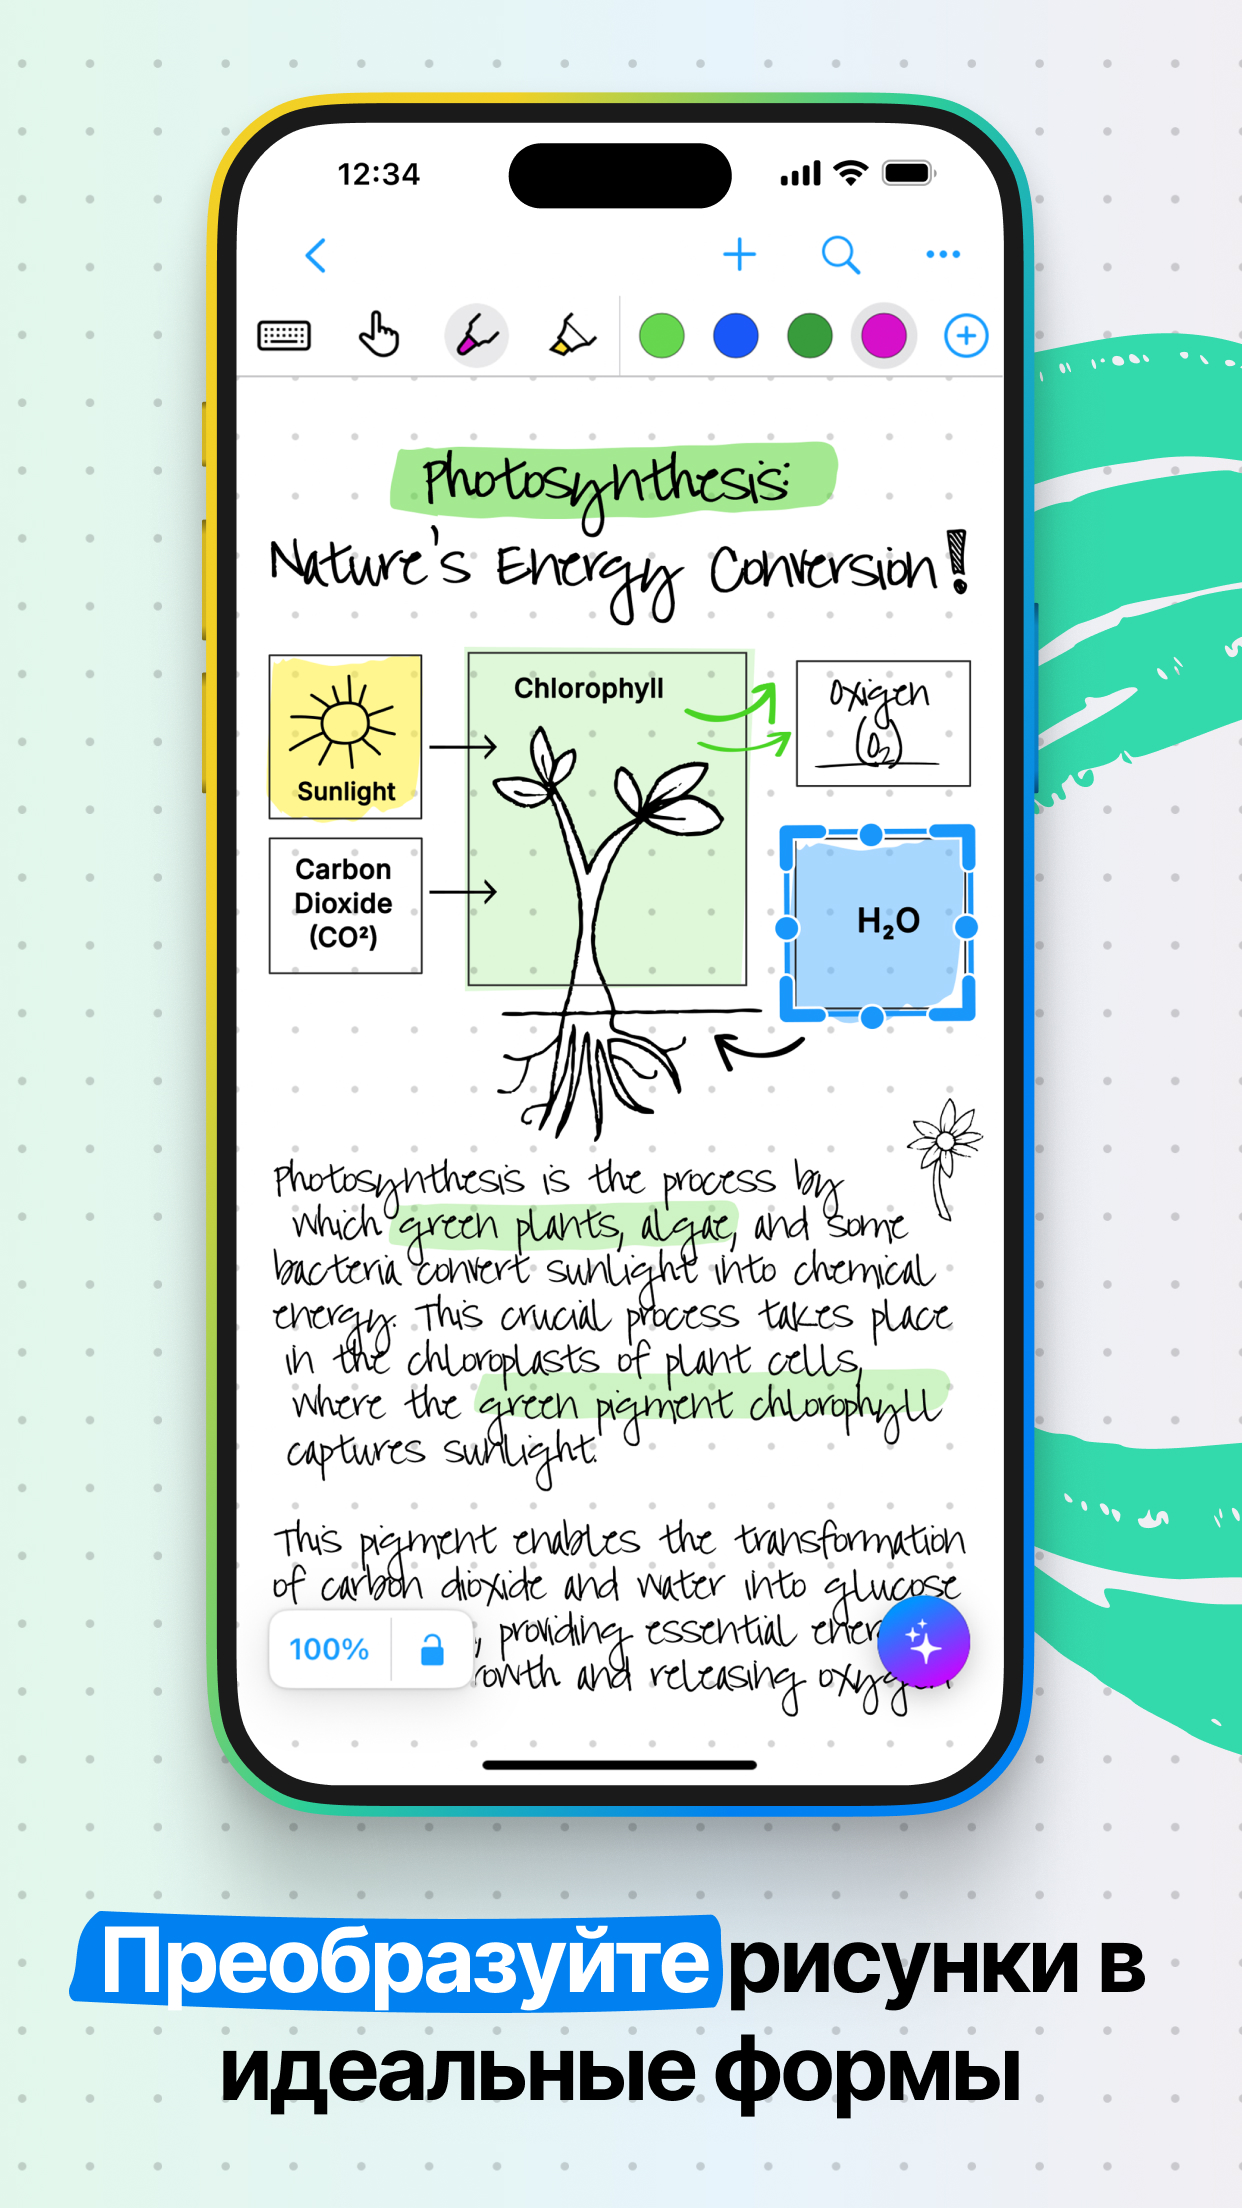 12:34
Photosynthesis:
Nature's Energy Conversion!
Chlorophyll
Oxigen
(O₂)
Sunlight
Carbon
Dioxide
(CO²)
H₂O
Photosynthesis is the process by
which green plants, algae, and some
bacteria convert sunlight into chemical
energy. This crucial process takes place
in the chloroplasts of plant cells,
where the green pigment chlorophyll
captures sunlight.
This pigment enables the transformation
of carbon dioxide and water into glucose
, providing essential
and releasing oxygen
100%
Преобразуйте рисунки в
идеальные формы